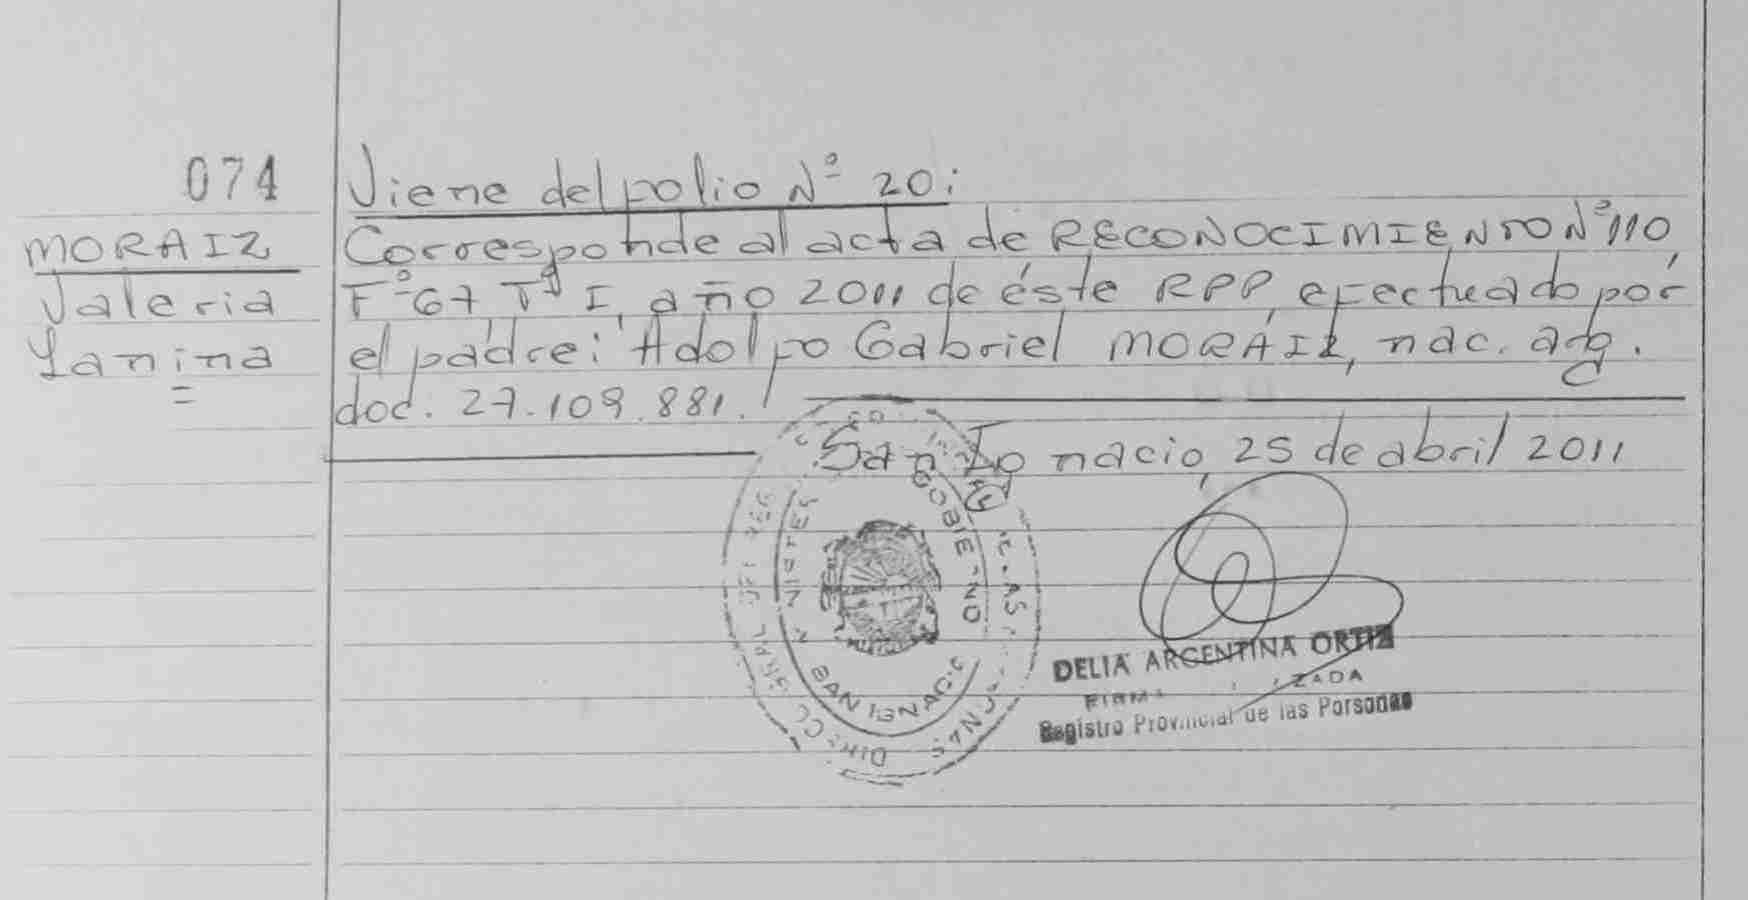 074
MORAIZ
Valeria
Yanina
Viene del folio Nº 20:
Corresponde al acta de RECONOCIMIENTO Nº 110,
Fº 67, Tº I, año 2011 de éste RPP, efectuado por
el padre: Adolfo Gabriel MORAIZ, nac. arg.
doc. 27.109.881.
San Ignacio, 25 de abril 2011
GOBIERNO
SAN IGNACIO
DELIA ARGENTINA ORTIZ
Registro Provincial de las Personas